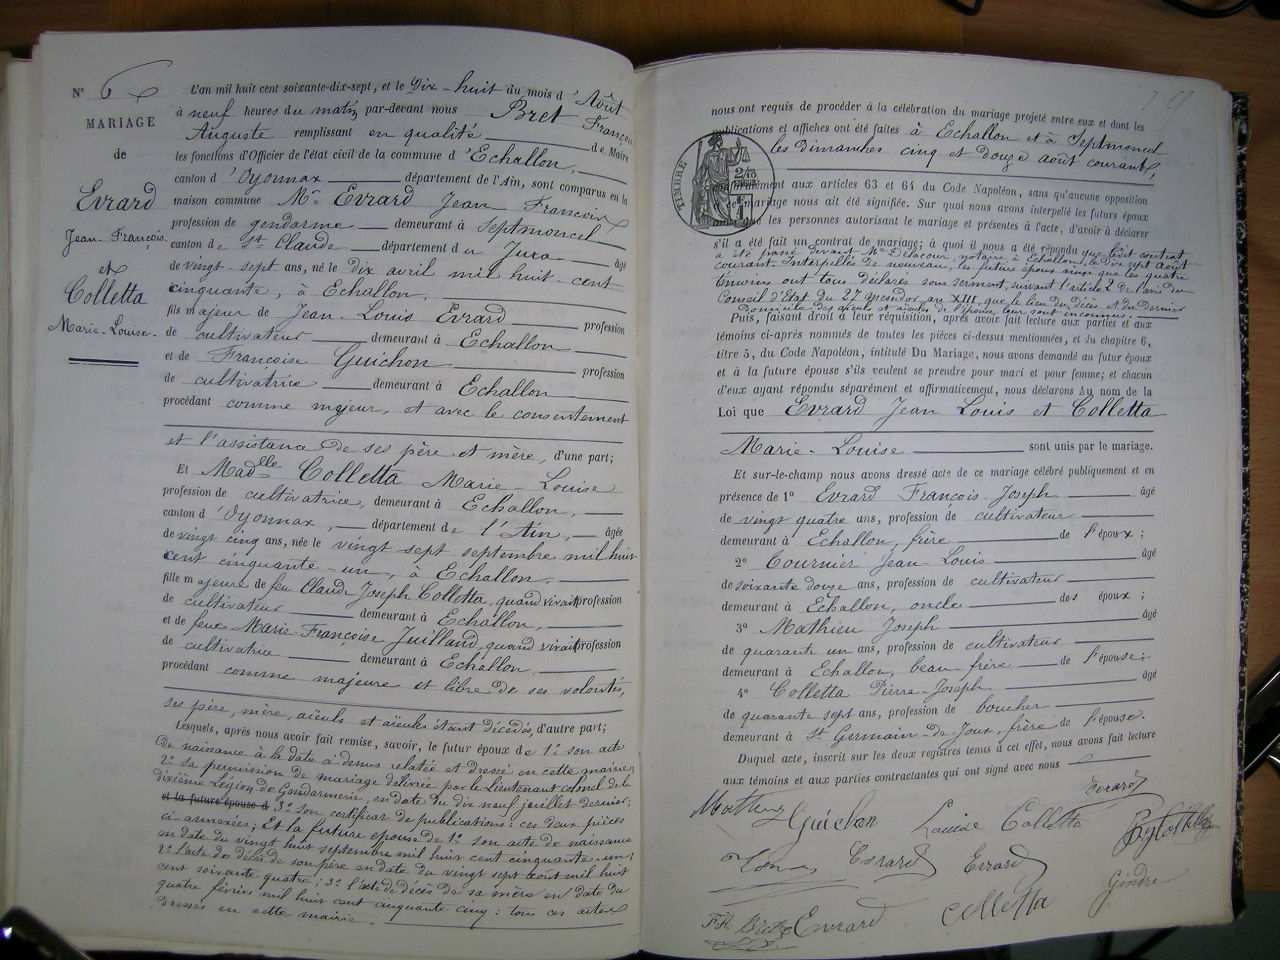 N° 6
MARIAGE
de
Evrard
Jean-François
et
Colletta
Marie-Louise.
L'an mil huit cent soixante-dix-sept, et le Dix-huit du mois d'Août
à neuf heures du matin par-devant nous Bret François
Auguste remplissant en qualité de Maire
les fonctions d'Officier de l'état civil de la commune d'Echallon,
canton d'Oyonnax département de l'Ain, sont comparus en la
maison commune Mr Evrard Jean François
profession de gendarme demeurant à Septmoncel
canton de St Claude département du Jura âgé
de vingt-sept ans, né le Dix avril mil huit cent
cinquante, à Echallon,
fils majeur de Jean-Louis Evrard profession
de cultivateur demeurant à Echallon
et de Françoise Guichon profession
de cultivatrice demeurant à Echallon
procédant comme majeur, et avec le consentement
et l'assistance de ses père et mère, d'une part;
Et Madlle Colletta Marie-Louise
profession de cultivatrice, demeurant à Echallon,
canton d'Oyonnax, département de l'Ain, âgée
de vingt cinq ans, née le vingt sept septembre mil huit
cent cinquante-un, à Echallon,
fille majeure de feu Claude Joseph Colletta, quand vivait profession
de cultivateur demeurant à Echallon,
et de feue Marie-Françoise Juilland, quand vivait profession
de cultivatrice demeurant à Echallon
procédant comme majeure et libre de ses volontés,
ses père, mère, aïeuls et aïeules étant décédés, d'autre part;
Lesquels, après nous avoir fait remise, savoir, le futur époux de 1° son acte
de naissance à la date ci-dessus relatée et dressé en cette mairie;
2° sa permission de mariage délivrée par le Lieutenant Colonel de la
dixième Légion de Gendarmerie, en date du dix neuf juillet dernier;
et la future épouse d 3° son certificat de publications: ces deux pièces
ci-annexées; Et la future épouse de 1° son acte de naissance
en date du vingt huit septembre mil huit cent cinquante-un;
2° l'acte de décès de son père en date du vingt sept août mil huit
cent soixante quatre; 3° l'acte de décès de sa mère en date du
quatre février mil huit cent cinquante cinq: tous ces actes
dressés en cette mairie
nous ont requis de procéder à la célébration du mariage projeté entre eux et dont les
publications et affiches ont été faites à Echallon et à Septmoncel
les Dimanches cinq et douze août courant,
TIMBRE
conformément aux articles 63 et 64 du Code Napoléon, sans qu'aucune opposition
à ce mariage nous ait été signifiée. Sur quoi nous avons interpellé les futurs époux
ainsi que les personnes autorisant le mariage et présentes à l'acte, d'avoir à déclarer
s'il a été fait un contrat de mariage; à quoi il nous a été répondu que ledit contrat,
a été passé devant Me Delacour, notaire à Echallon, le dix sept Août
courant. Interpellés de nouveau, les futurs époux ainsi que les quatre
témoins ont tous déclaré sous serment, suivant l'article 2 de l'avis du
Conseil d'Etat du 27 Messidor an XIII, que le lieu du décès et du dernier
domicile des aïeuls et aïeules de l'épouse, leur sont inconnus.
Puis, faisant droit à leur réquisition, après avoir fait lecture aux parties et aux
témoins ci-après nommés de toutes les pièces ci-dessus mentionnées, et du chapitre 6,
titre 5, du Code Napoléon, intitulé Du Mariage, nous avons demandé au futur époux
et à la future épouse s'ils veulent se prendre pour mari et pour femme; et chacun
d'eux ayant répondu séparément et affirmativement, nous déclarons au nom de la
Loi que Evrard Jean Louis et Colletta
Marie-Louise sont unis par le mariage.
Et sur-le-champ nous avons dressé acte de ce mariage célébré publiquement et en
présence de 1° Evrard François-Joseph âgé
de vingt quatre ans, profession de cultivateur
demeurant à Echallon, frère de l'époux;
2° Tournier Jean-Louis âgé
de soixante douze ans, profession de cultivateur
demeurant à Echallon, oncle des époux;
3° Mathieu Joseph âgé
de quarante un ans, profession de cultivateur
demeurant à Echallon, beau-frère de l'épouse;
4° Colletta Pierre-Joseph âgé
de quarante sept ans, profession de boucher
demeurant à St Germain-de-Joux, frère de l'épouse.
Duquel acte, inscrit sur les deux registres tenus à cet effet, nous avons fait lecture
aux témoins et aux parties contractantes qui ont signé avec nous
Evrard
Mathieu Guichon Louise Colletta
Evrard Evrard
Gindre
Evrard Colletta